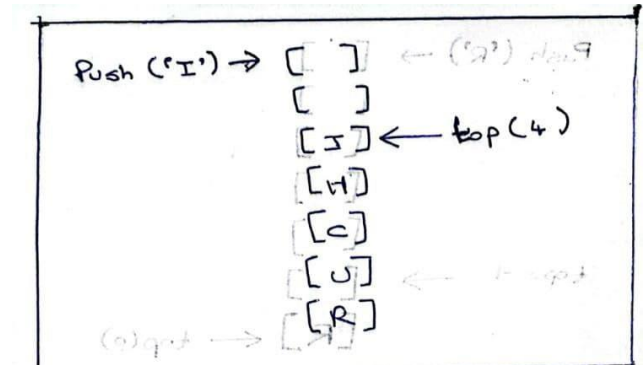 Push ('I') → [ ]
[ ]
[I] ← top (4)
[H]
[C]
[U]
[R]